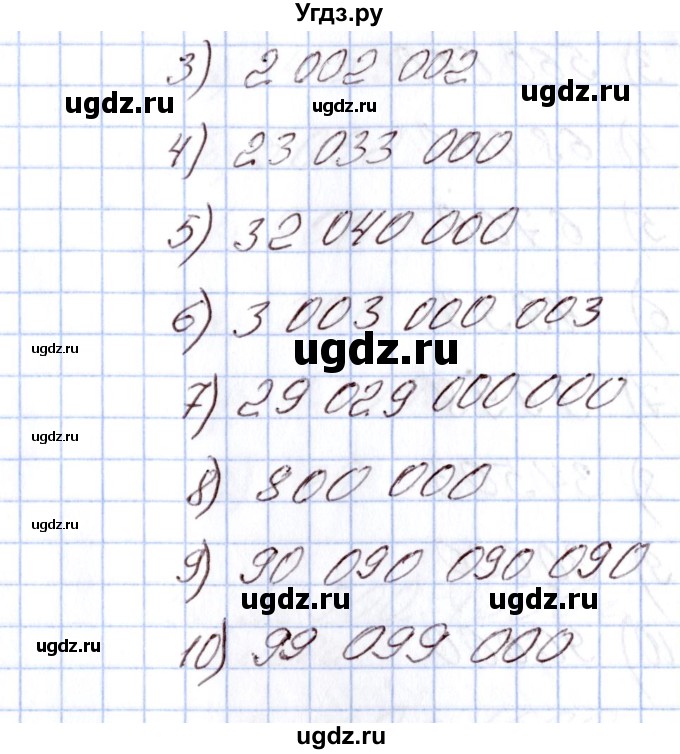 Угдз.ру
3) 2 002 002
ugdz.ru
ugdz.ru
ugdz.ru
4) 23 033 000
5) 32 040 000
6) 3 003 000 003
ugdz.ru
ugdz.ru
7) 29 029 000 000
ugdz.ru
8) 800 000
ugdz.ru
9) 90 090 090 090
ugdz.ru
ugdz.ru
10) 99 099 000
ugdz.ru
ugdz.ru